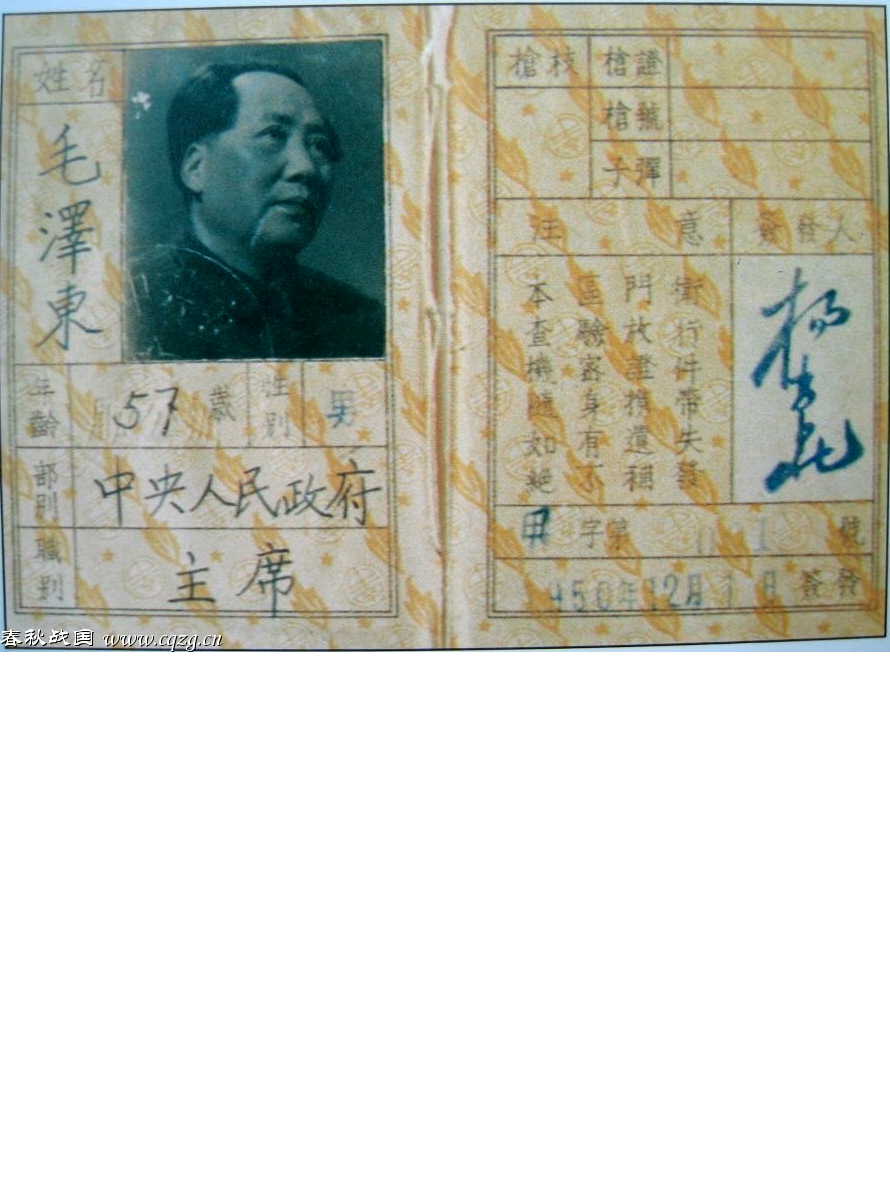 姓名
毛澤東
年齡 57歲 性别 男
部别 中央人民政府
職别 主席
槍枝 槍證
槍號
子彈
注意 簽發人
本區門衛
查驗放行
機密證件
隨身携帶
如有遺失
絕不補發
甲字第 1 號
1950年12月1日簽發
春秋战国 www.cqzg.cn